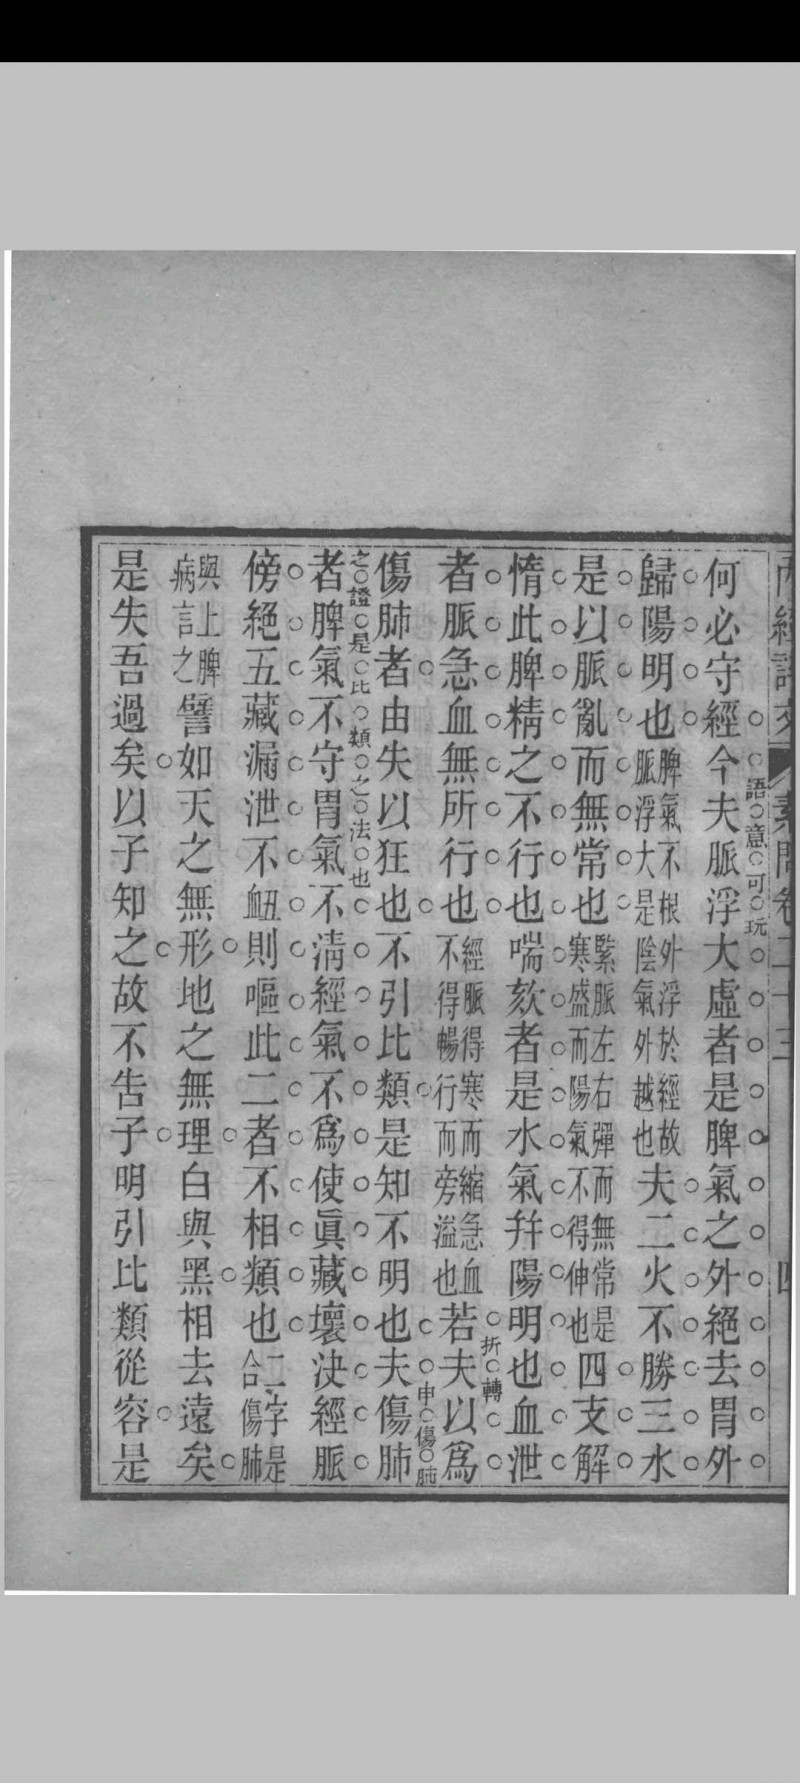 素問卷二十三
四
何必守經今夫脈浮大虛者是脾氣之外絕去胃外
語意可玩
歸陽明也脾氣不根外浮於經故脈浮大是陰氣外越也夫二火不勝三水
是以脈亂而無常也緊脈左右彈而無常是寒盛而陽氣不得伸也四支解
惰此脾精之不行也喘欬者是水氣幷陽明也血泄
者脈急血無所行也經脈得寒而縮急血不得暢行而旁溢也若夫以爲
折轉
傷肺者由失以狂也不引比類是知不明也夫傷肺
申傷肺之證是比類之法也
者脾氣不守胃氣不淸經氣不爲使眞藏壞決經脈
傍絕五藏漏泄不衄則嘔此二者不相類也二字是合傷肺
與上脾病言之譬如天之無形地之無理白與黑相去遠矣
是失吾過矣以子知之故不告子明引比類從容是